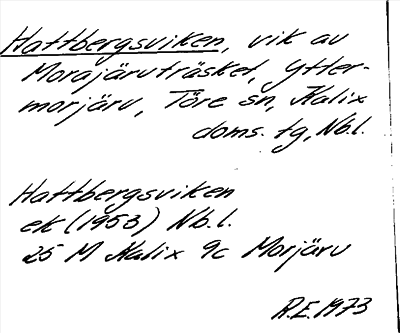 Hattbergsviken, vik av
Morajärvträsket, Ytter-
morjärv, Töre sn, Kalix
doms. tg, Nb.l.
Hattbergsviken
ek (1953) Nb.l.
25 M Kalix 9c Morjärv
R.E. 1973